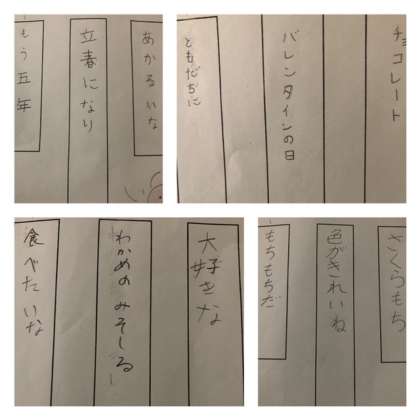 あかるいな
立春になり
もう五年
チョコレート
バレンタインの日
ともだちに
大好きな
わかめのみそしる
食べたいな
さくらもち
色がきれいね
もちもちだ